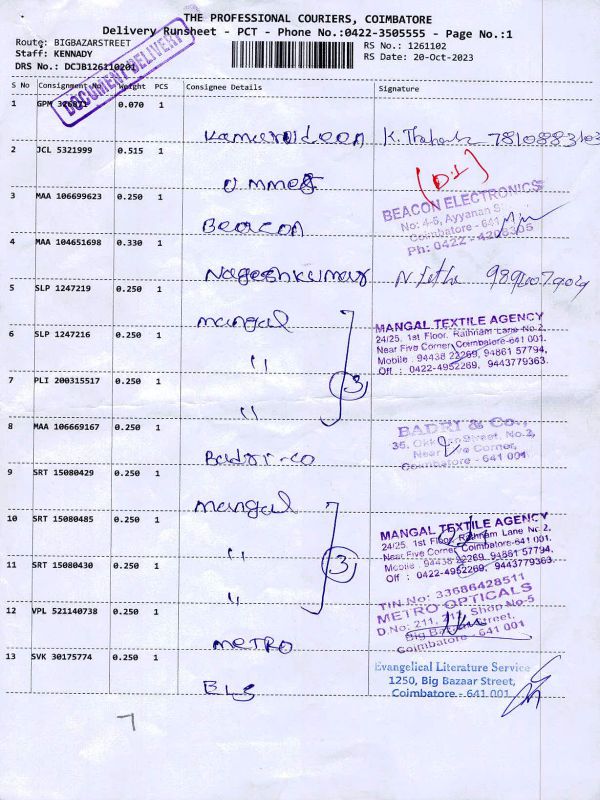 THE PROFESSIONAL COURIERS, COIMBATORE
Delivery Runsheet - PCT - Phone No.:0422-3505555 - Page No.:1
Route: BIGBAZARSTREET
Staff: KENNADY
DRS No.: DCJB126110201
RS No.: 1261102
RS Date: 20-Oct-2023
DOCUMENT DELIVERY
S No Consignment No Weight PCS Consignee Details Signature
1 GPM 0.070 1
Kamuroideen K. 7810883103
2 JCL 5321999 0.515 1
ummer
(D.I)
3 MAA 106699623 0.250 1
Beacon
BEACON ELECTRONICS
No: 4-6, Ayyanan S
Coimbatore - 641
Ph: 0422 - 4208305
4 MAA 104651698 0.330 1
Nageshkumar N.
5 SLP 1247219 0.250 1
mangal
6 SLP 1247216 0.250 1
"
7 PLI 200315517 0.250 1
"
3
MANGAL TEXTILE AGENCY
24/25, 1st Floor, Rathnam Lane No.2,
Near Five Corner, Coimbatore-641 001.
Mobile : 94438 22269, 94861 57794,
Off : 0422-4952269, 9443779363.
8 MAA 106669167 0.250 1
Badri-co
BADRI & Co.,
35, Street, No.2,
Near Five Corner,
Coimbatore - 641 001
9 SRT 15080429 0.250 1
mangal
10 SRT 15080485 0.250 1
"
11 SRT 15080430 0.250 1
"
3
MANGAL TEXTILE AGENCY
24/25, 1st Floor, Rathnam Lane No.2,
Near Five Corner, Coimbatore-641 001.
Mobile : 94438 22269, 94861 57794,
Off : 0422-4952269, 9443779363.
12 VPL 521140738 0.250 1
METRO
TIN-No: 33686428511
METRO OPTICALS
D.No: 211, 212, Shop No-5
Big Bazaar Street,
Coimbatore - 641 001
13 SVK 30175774 0.250 1
ELS
Evangelical Literature Service
1250, Big Bazaar Street,
Coimbatore - 641 001